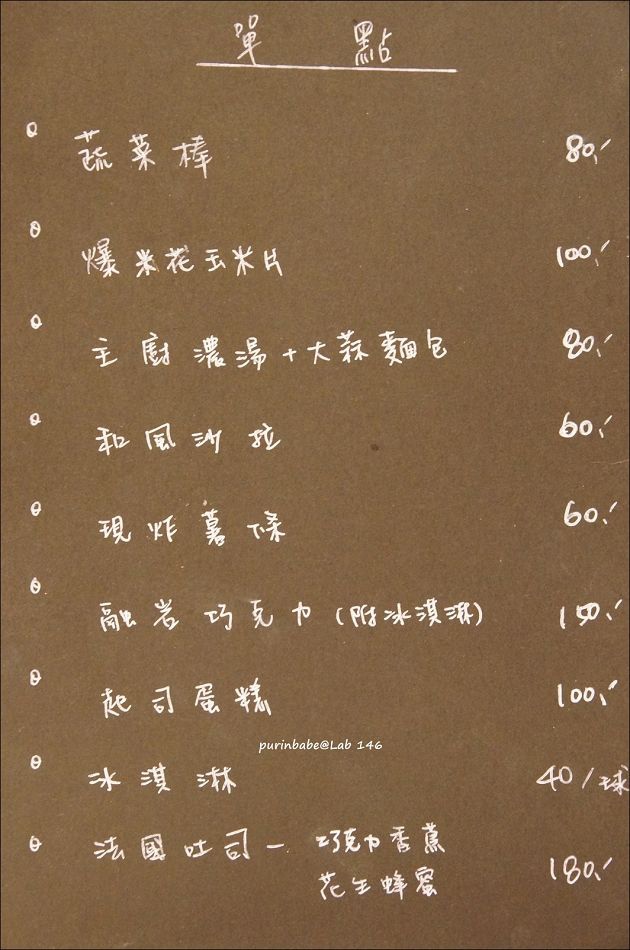 單 點
蔬菜棒 80.-
爆米花玉米片 100.-
主廚濃湯+大蒜麵包 80.-
和風沙拉 60.-
現炸薯條 60.-
融岩巧克力(附冰淇淋) 150.-
起司蛋糕 100.-
purinbabe@Lab 146
冰淇淋 40/球
法國吐司- 巧克力香蕉
花生蜂蜜 180.-